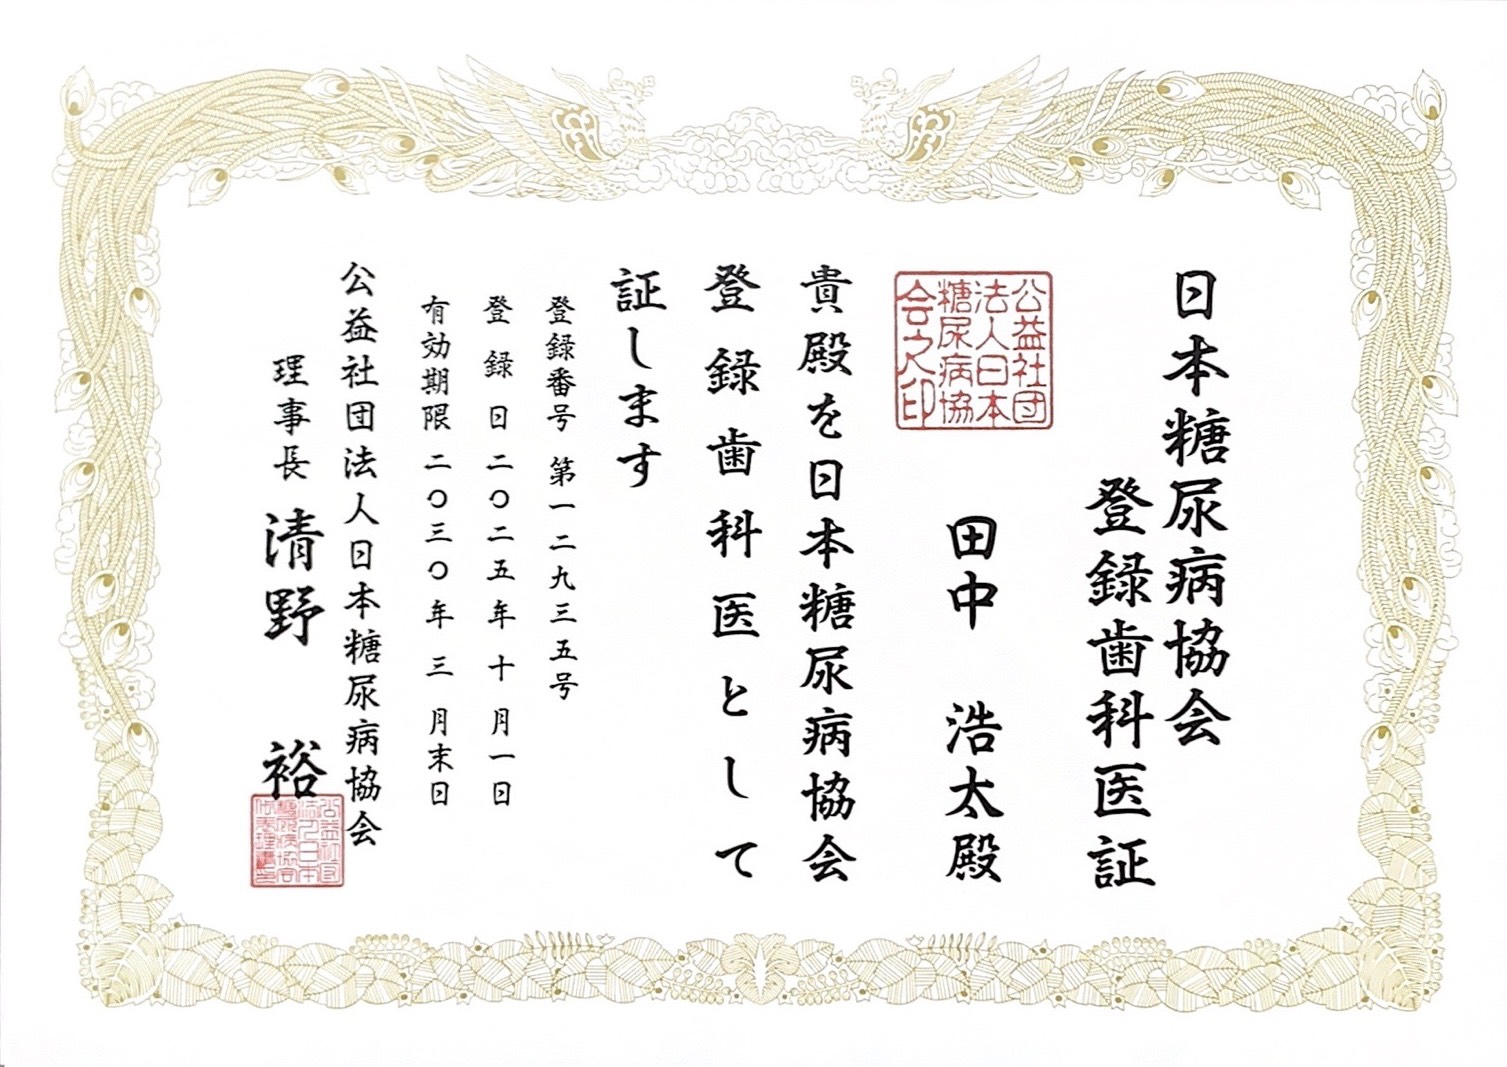 日本糖尿病協会
登録歯科医証
公益社団
法人日本
糖尿病協
会之印
田中 浩太殿
貴殿を日本糖尿病協会
登録歯科医として
証します
登録番号 第一二九三五号
登録日 二〇二五年十月一日
有効期限 二〇三〇年三月末日
公益社団法人日本糖尿病協会
理事長 清野 裕